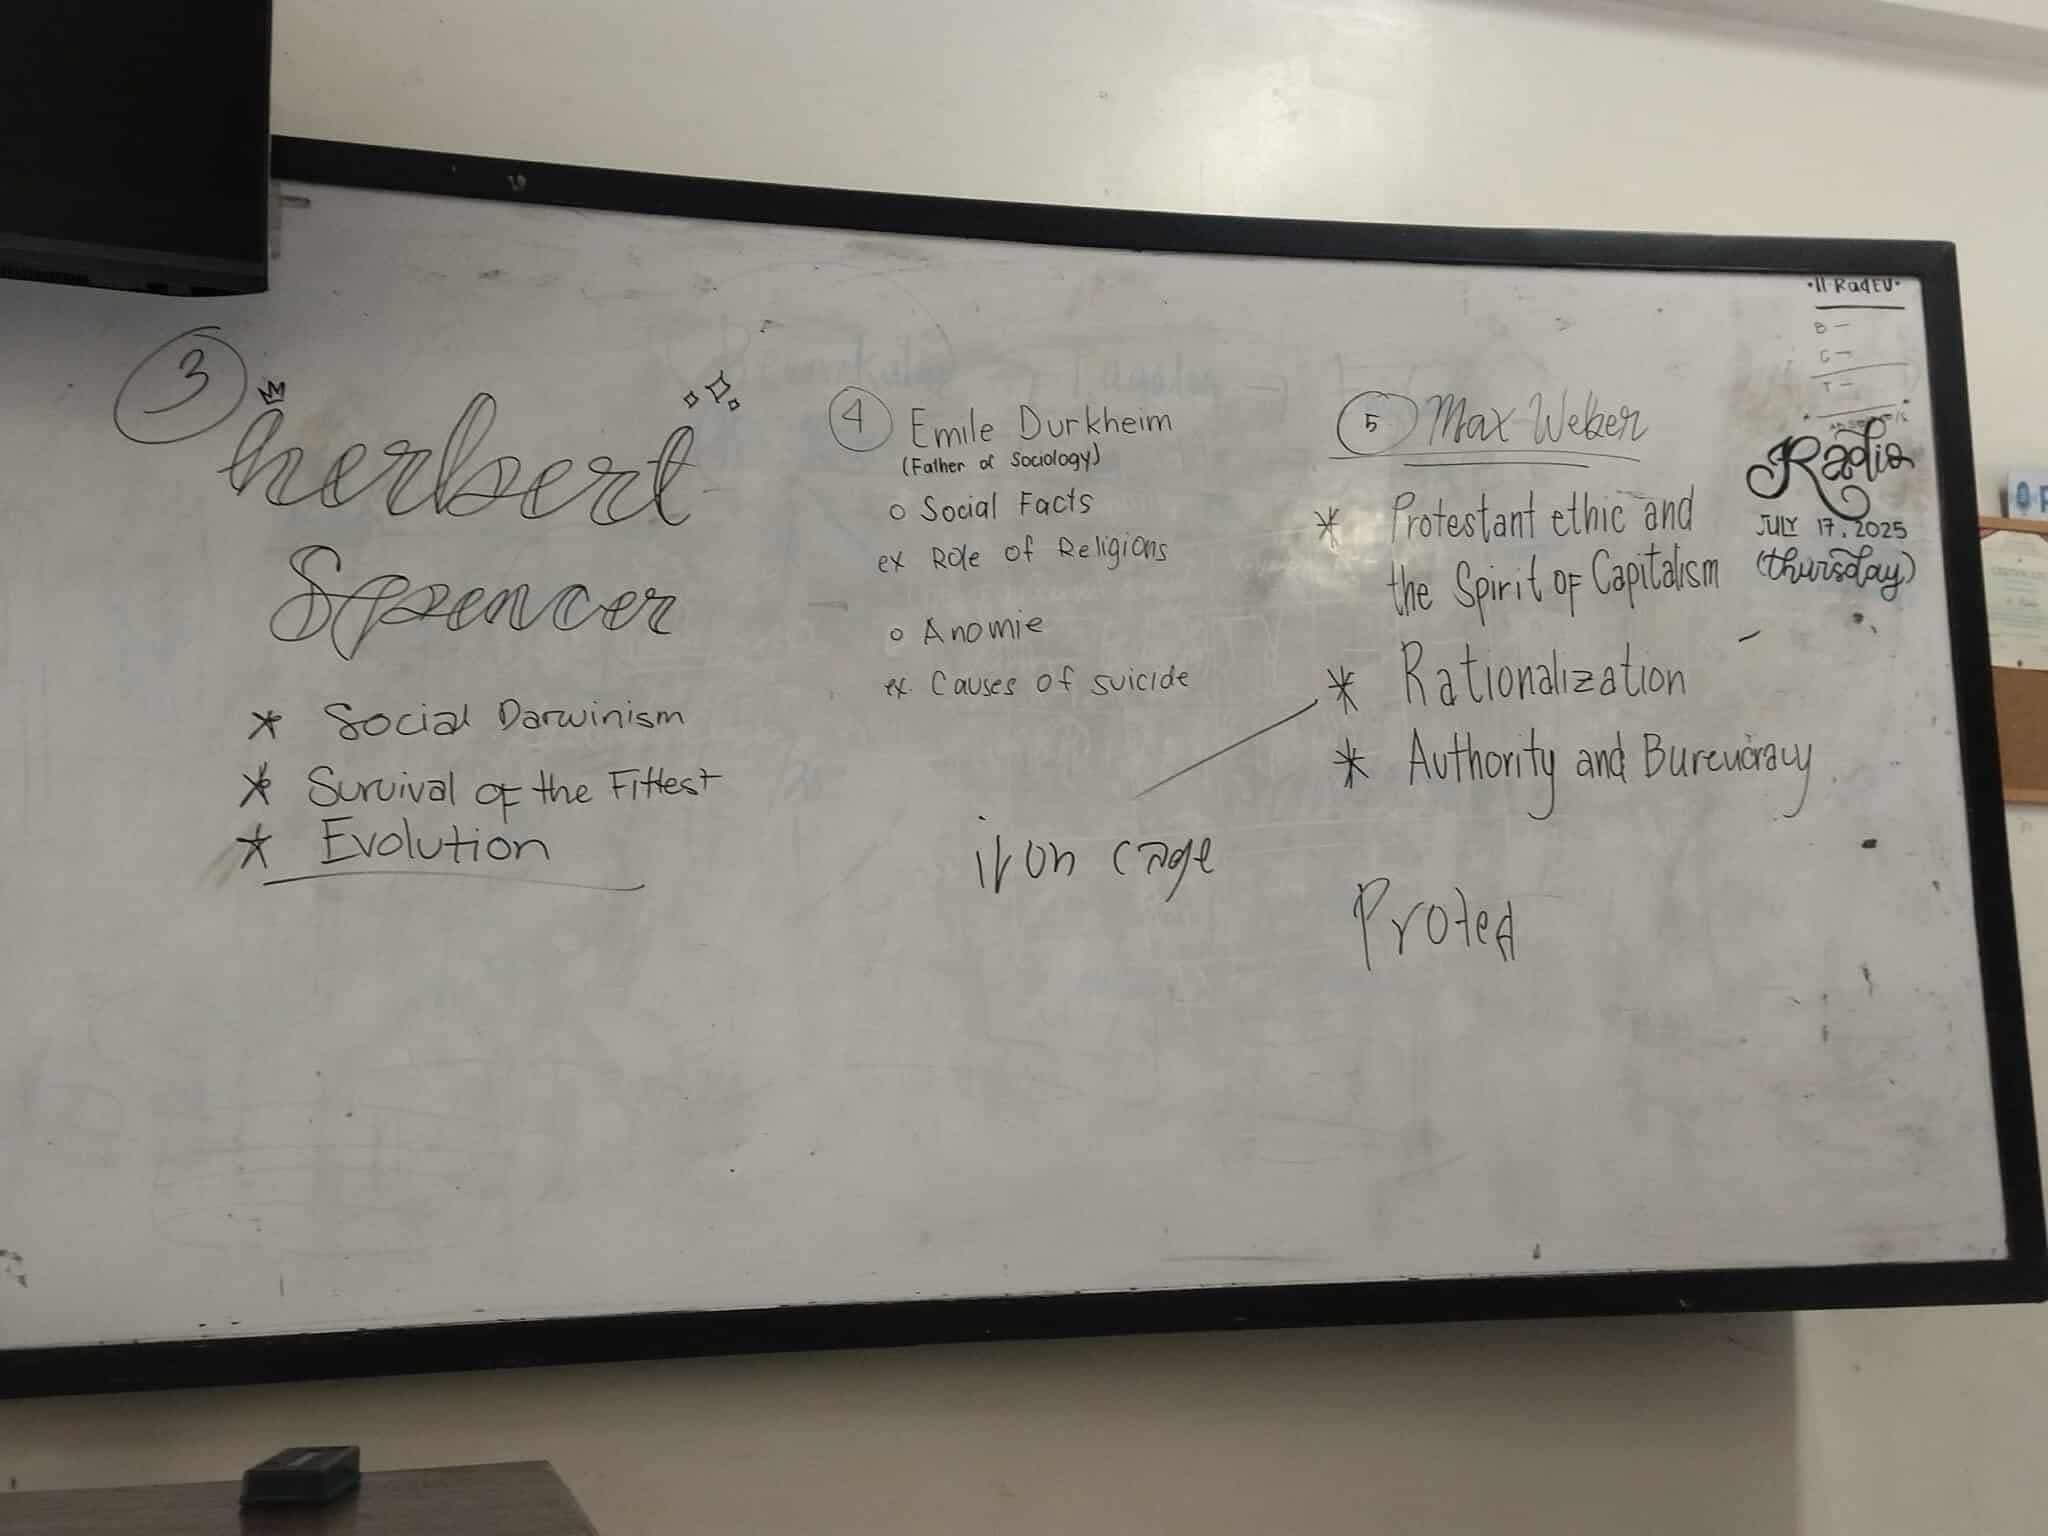 3
herbert
Spencer
* Social Darwinism
* Survival of the Fittest
* Evolution
4 Emile Durkheim
(Father of Sociology)
o Social Facts
ex Role of Religions
o Anomie
ex. Causes of suicide
iron cage
5 Max Weber
* Protestant ethic and
the Spirit of Capitalism
* Rationalization
* Authority and Bureucracy
Protea
•11 RadEU•
B -
G -
T -
Radio
JULY 17, 2025
(thursday)